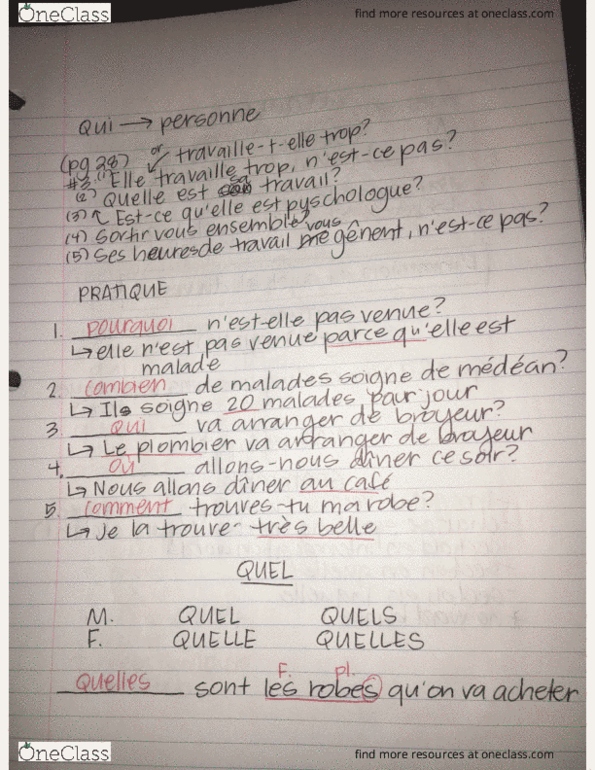 OneClass
find more resources at oneclass.com
Qui → personne
or travaille-t-elle trop?
(pg 28)
#3: (1) Elle travaille trop, n'est-ce pas?
(2) Quelle est sa travail?
(3) Est-ce qu'elle est pyschologue?
(4) Sortir vous ensemble?
(5) Ses heures de travail vous gênent, n'est-ce pas?
PRATIQUE
1. pourquoi n'est-elle pas venue?
↳ elle n'est pas venue parce qu'elle est
malade
2. combien de malades soigne de médéan?
↳ Il soigne 20 malades par jour
3 qui va arranger de broyeur?
↳ Le plombier va arranger de broyeur
4. où allons-nous dîner ce soir?
↳ Nous allons dîner au café
5. comment trouves-tu ma robe?
↳ Je la trouve très belle
QUEL
M. QUEL QUELS
F. QUELLE QUELLES
F. pl.
Quelles sont les robes qu'on va acheter
OneClass
find more resources at oneclass.com